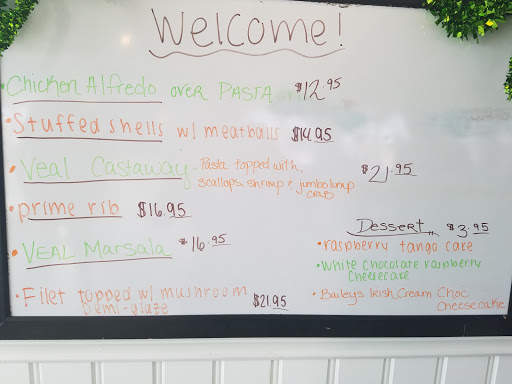 Welcome!
• Chicken Alfredo over PASTA $12.95
• Stuffed shells w/ meatballs $14.95
• Veal Castaway. Pasta topped with, $21.95
scallops, shrimp & jumbo lump
crab
• prime rib $16.95
• VEAL Marsala $16.95
• Filet topped w/ mushroom $21.95
Demi-glaze
Dessert $3.95
• raspberry tango cake
• White chocolate raspberry
cheesecake
• Baileys Irish Cream Choc
Cheesecake